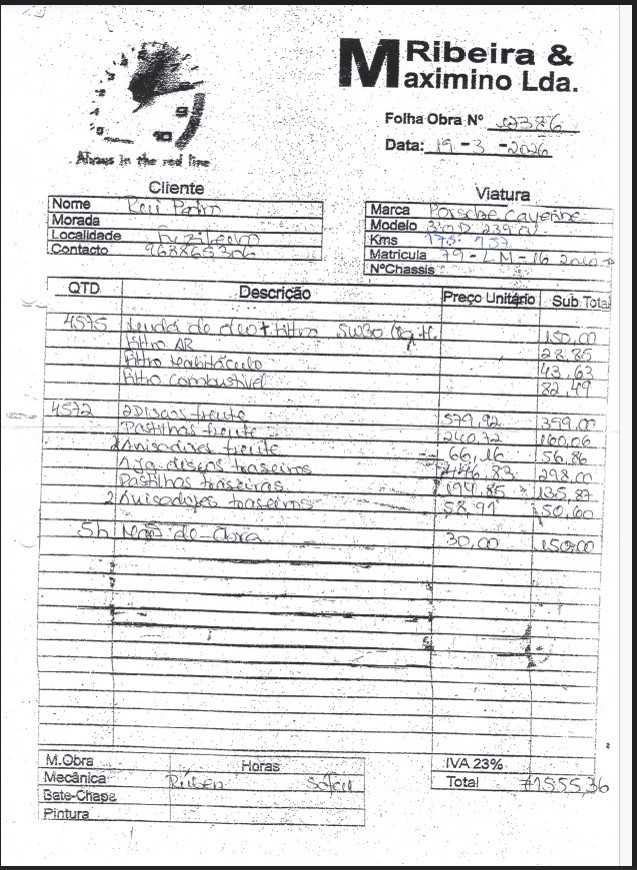 MRibeira &
Maximino Lda.
Always in the red line
Folha Obra Nº 12386
Data: 19-3-2026
Cliente
Nome
Morada
Localidade
Contacto 968865306
Viatura
Marca Porsche Cayenne
Modelo 3.0D
Kms 175.757
Matricula 79-LM-16
NºChassis
QTD Descrição Preço Unitário Sub Total
4575 de oleo + filtro 5W30 150,00
filtro AR 28,85
filtro Habitáculo 43,63
filtro combustível 82,49
4572 2 Discos frente 579,92 399,00
Pastilhas frente 240,72 160,06
2 Avisadores frente 66,16 56,86
discos traseiros 446,83 298,00
Pastilhas traseiras 194,85 135,87
2 Avisadores traseiros 58,91 50,60
5h Mão-de-Obra 30,00 150,00
M.Obra Horas
Mecânica Rúben
Bate-Chapa
Pintura
IVA 23%
Total 1555,36